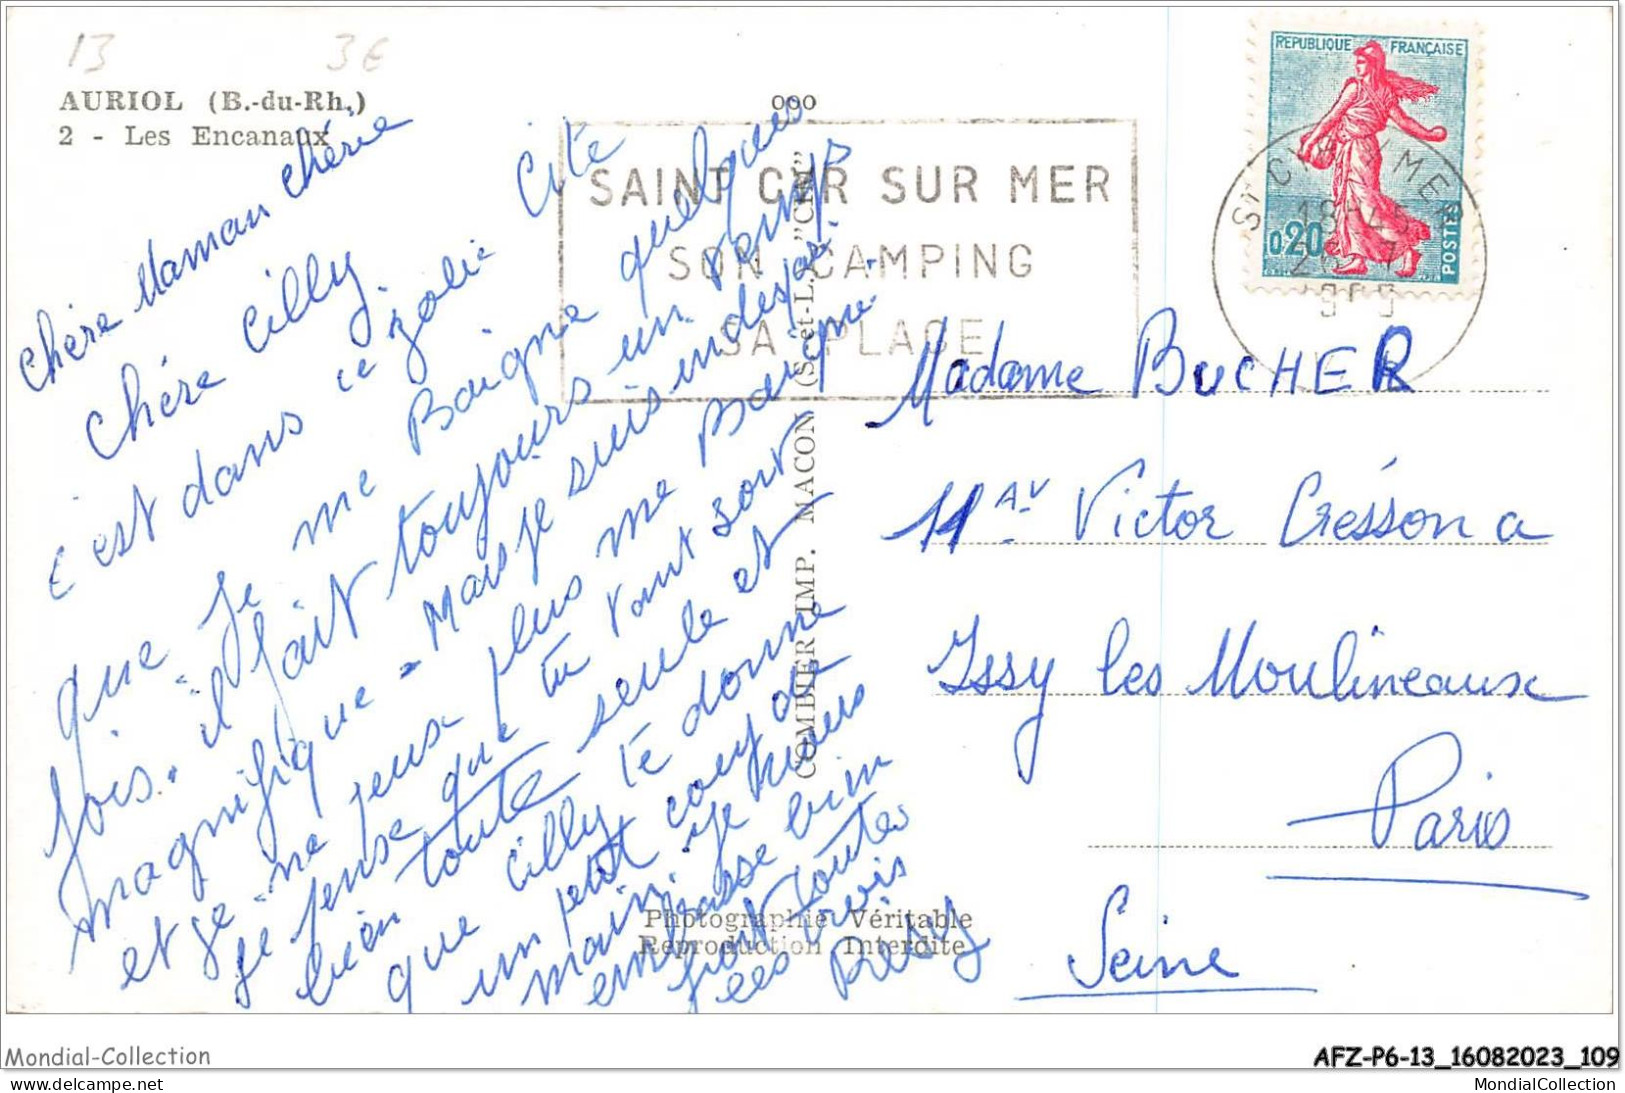 13 3€
AURIOL (B.-du-Rh.)
2 - Les Encanaux
Chère Maman chérie
Chère Cilly.
c'est dans ce jolie Cité
que je me Baigne quelques
fois. il fait toujours un temps
magnifique - Mais je suis indespos.
et je ne peux plus me Baigner.
je pense que tu vant sort
bien toute seule et
que Cilly te donne
un petit coup de
main. je vous
embrasse bien
fort toutes
les trois
Resy
COMBIER IMP. MACON (S.-et-L.) "CIM"
SAINT CYR SUR MER
SON CAMPING
SA PLAGE
REPUBLIQUE FRANÇAISE
0,20
POSTES
ST CYR S/ MER
18H45
Madame BUCHER
11 Av Victor Crésson a
Issy les Moulineaux
Paris
Seine
Photographie Véritable
Reproduction Interdite
Mondial-Collection
AFZ-P6-13_16082023_109
www.delcampe.net
MondialCollection